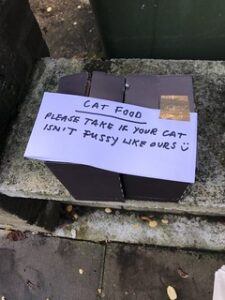 CAT FOOD
PLEASE TAKE IF YOUR CAT
ISN'T FUSSY LIKE OURS ☺